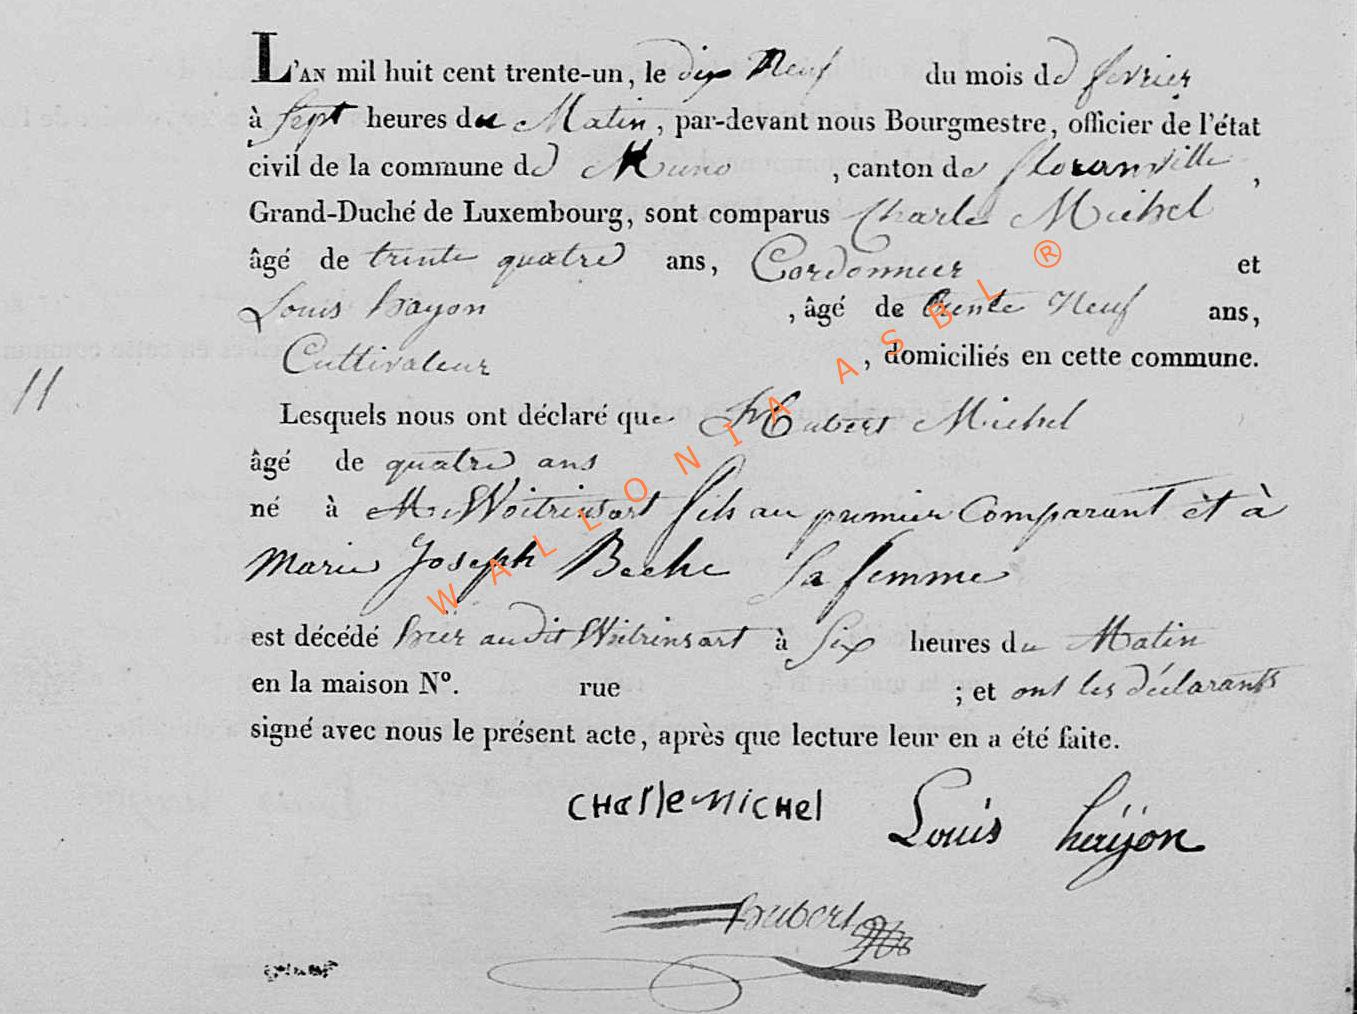 L'AN mil huit cent trente-un, le dix Neuf du mois de fevrier
à sept heures du Matin, par-devant nous Bourgmestre, officier de l'état
civil de la commune de Muno, canton de floranville,
Grand-Duché de Luxembourg, sont comparus Charle Michel
âgé de trente quatre ans, Cordonnier et
Louis hayon, âgé de trente Neuf ans,
Cultivateur, domiciliés en cette commune.
11
Lesquels nous ont déclaré que Hubert Michel
âgé de quatre ans
né à Woitrinsart fils au premier Comparant et à
Marie Joseph Beche sa femme
est décédé hier audit Woitrinsart à Six heures du Matin
en la maison N°. rue ; et ont les déclarants
signé avec nous le présent acte, après que lecture leur en a été faite.
CHarle MICHel Louis hayon
hubert
WALLONIA ASBL ®